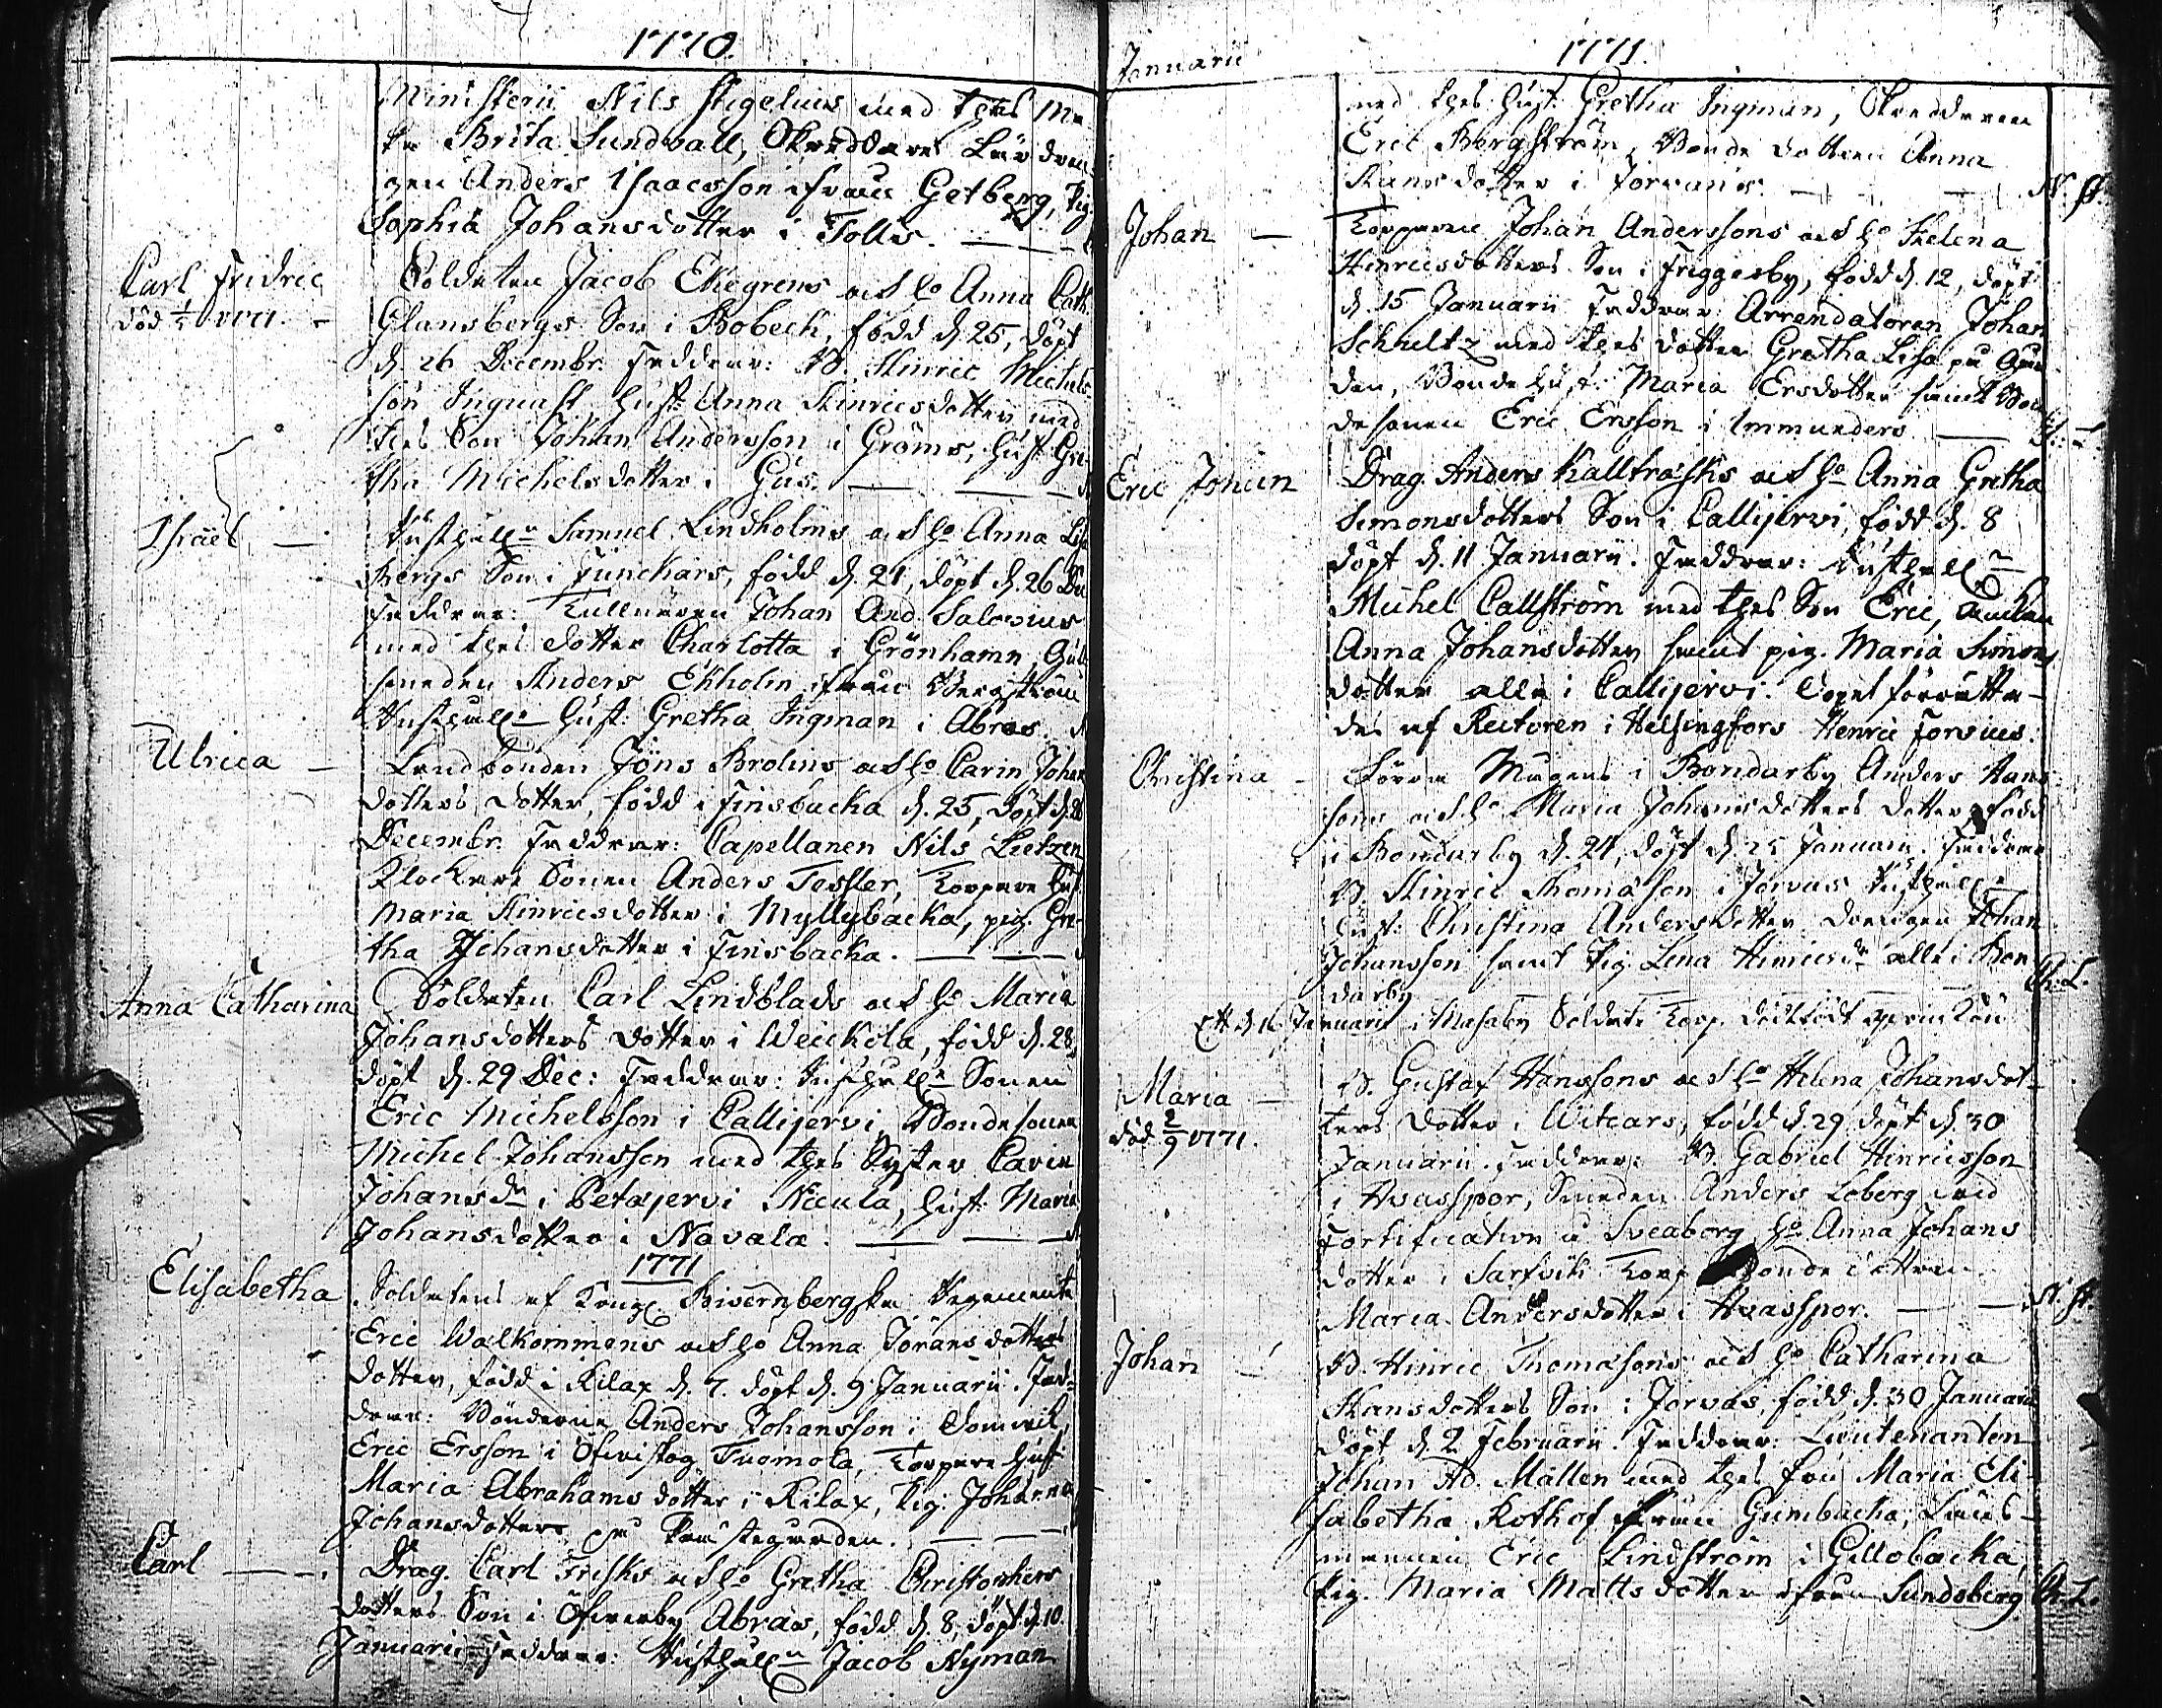 1770.
Ministerii Nils Stigelius med thes Ma-
ka Brita Sundvall, Skräddare Lärdren-
gen Anders Isaacsson ifrån Getberg, Pig.
Sophia Johansdotter i Tolls.
Carl Fridric
död 1771.
Soldaten Jacob Ekegrens och Ho Anna Cath.
Glansbergs Son i Bobeck, född d. 25, döpt
d. 26 Decembr. Faddrar: B. Hinric Michels-
son Inguast, Hust. Anna Hinricsdotter med
thes Son Johan Andersson i Gröms, Hust. Gre-
tha Michelsdotter i Gus.
Israel
Rusthåll. Samuel Lindholms och Ho Anna Lisa
Bergs Son i Junckars, född d. 21, döpt d. 26 De
Faddrar: Tullnären Johan And. Salovius
med thes dotter Charlotta i Grönhamn, Gull
smeden Anders Ekholm ifrån Bergström
Rusthåll. Hust. Gretha Ingman i Abras.
Ulrica
Landbonden Jöns Brolins och Ho Carin Johans
dotters dotter, född i Finsbacka d. 25, döpt d. 26
Decembr. Faddrar: Capellanen Nils Lietzen
Klockare Sonen Anders Tessler, Torpare Hust.
Maria Hinricsdotter i Myllybacka, pig. Gre-
tha Johansdotter i Finsbacka.
Anna Catharina
Soldaten Carl Lindblads och Ho Maria
Johansdotters dotter i Weickola, född d. 28,
döpt d. 29 Dec: Faddrar: Rusthåll. Sonen
Eric Michelsson i Callijervi, Bondesonen
Michel Johansson med thes Syster Carin
Johansdr i Betajervi Nicula, Hust. Maria
Johansdotter i Navala.
1771
Elisabetha
Soldatens af Kongl. Biörnbergska Regemente
Eric Walkommens och Ho Anna Jöransdotters
dotter, född i Kilax d. 7. döpt d. 9 Januarii. Fad-
drar: Bönderne Anders Johansson i Domvik,
Eric Ersson i Öfvistog Tuomola, Torpare Hust.
Maria Abrahamsdotter i Kilax, Pig. Johanna
Johansdotter på Prästegården.
Carl
Drag. Carl Frisks och Ho Gretha Christophers
dotters Son i Öfverby Abras, född d. 8, döpt d. 10.
Januarii Faddrar: Rusthåll. Jacob Nyman
Januarii
1771.
med thes Hust. Gretha Ingman, Skräddaren
Eric Bergström, Bonde dottren Anna
Hansdotter i Jorvans. N. St.
Johan
Torparen Johan Anderssons och Ho Helena
Hinricsdotters Son i Friggesby, född d. 12, döpt
d. 15 Januarii Faddrar: Arrendatoren Johan
Schultz med thes dotter Gretha Lisa på Går
den, Bonde Hust. Maria Ersdotter samt Bon
desonen Eric Ersson i Immunders
Eric Johan
Drag. Anders Kallträsks och Ho Anna Gretha
Simonsdotters Son i Callijervi, född d. 8
döpt d. 11 Januarii. Faddrar: Rusthåll.
Michel Callström med thes Son Eric, Enckan
Anna Johansdotter samt pig. Maria Simons
dotter alla i Callijervi. Dopet förrätta-
des af Rectoren i Helsingfors Henric Forsius.
Christina
Förra Mågens i Bondarby Anders Hans
sons och Ho Maria Johansdotters dotter, född
i Bondarby d. 24, döpt d. 25 Januarii. Faddrar
B. Hinric Thomasson i Jorvas Rusthåll.
Hust: Christina Andersdotter drengen Johan
Johansson samt Pig. Lena Hinricsdr alla i Bon
darby Ch: L.
Ett d. 16 Januarii i Masaby Soldats Torp. dödfödt qvinkön
Maria
död 2/9 1771.
B. Gustaf Hanssons och Ho Helena Johansdot-
ters dotter i Witcars, född d. 29, döpt d. 30
Januarii. Faddrar: B. Gabriel Hinricsson
i Hvasspor, Smeden Anders Loberg wid
Fortification å Sveaborg, Ho Anna Johans
dotter i Sarfvik Torp Bonde dottren
Maria Andersdotter i Hvasspor. N. St.
Johan
B. Hinric Thomasons och Ho Catharina
Hansdotters Son i Jorvas, född d. 30 Januarii
döpt d. 2 Februarii. Faddrar: Lieutenanten
Johan Ad. Mallen med thes fru Maria Eli-
sabetha Rothof ifrån Gumbacka, Läns-
mannen Eric Lindström i Gillobacka,
Pig. Maria Mattsdotter ifrån Sundsberg Ch. L.